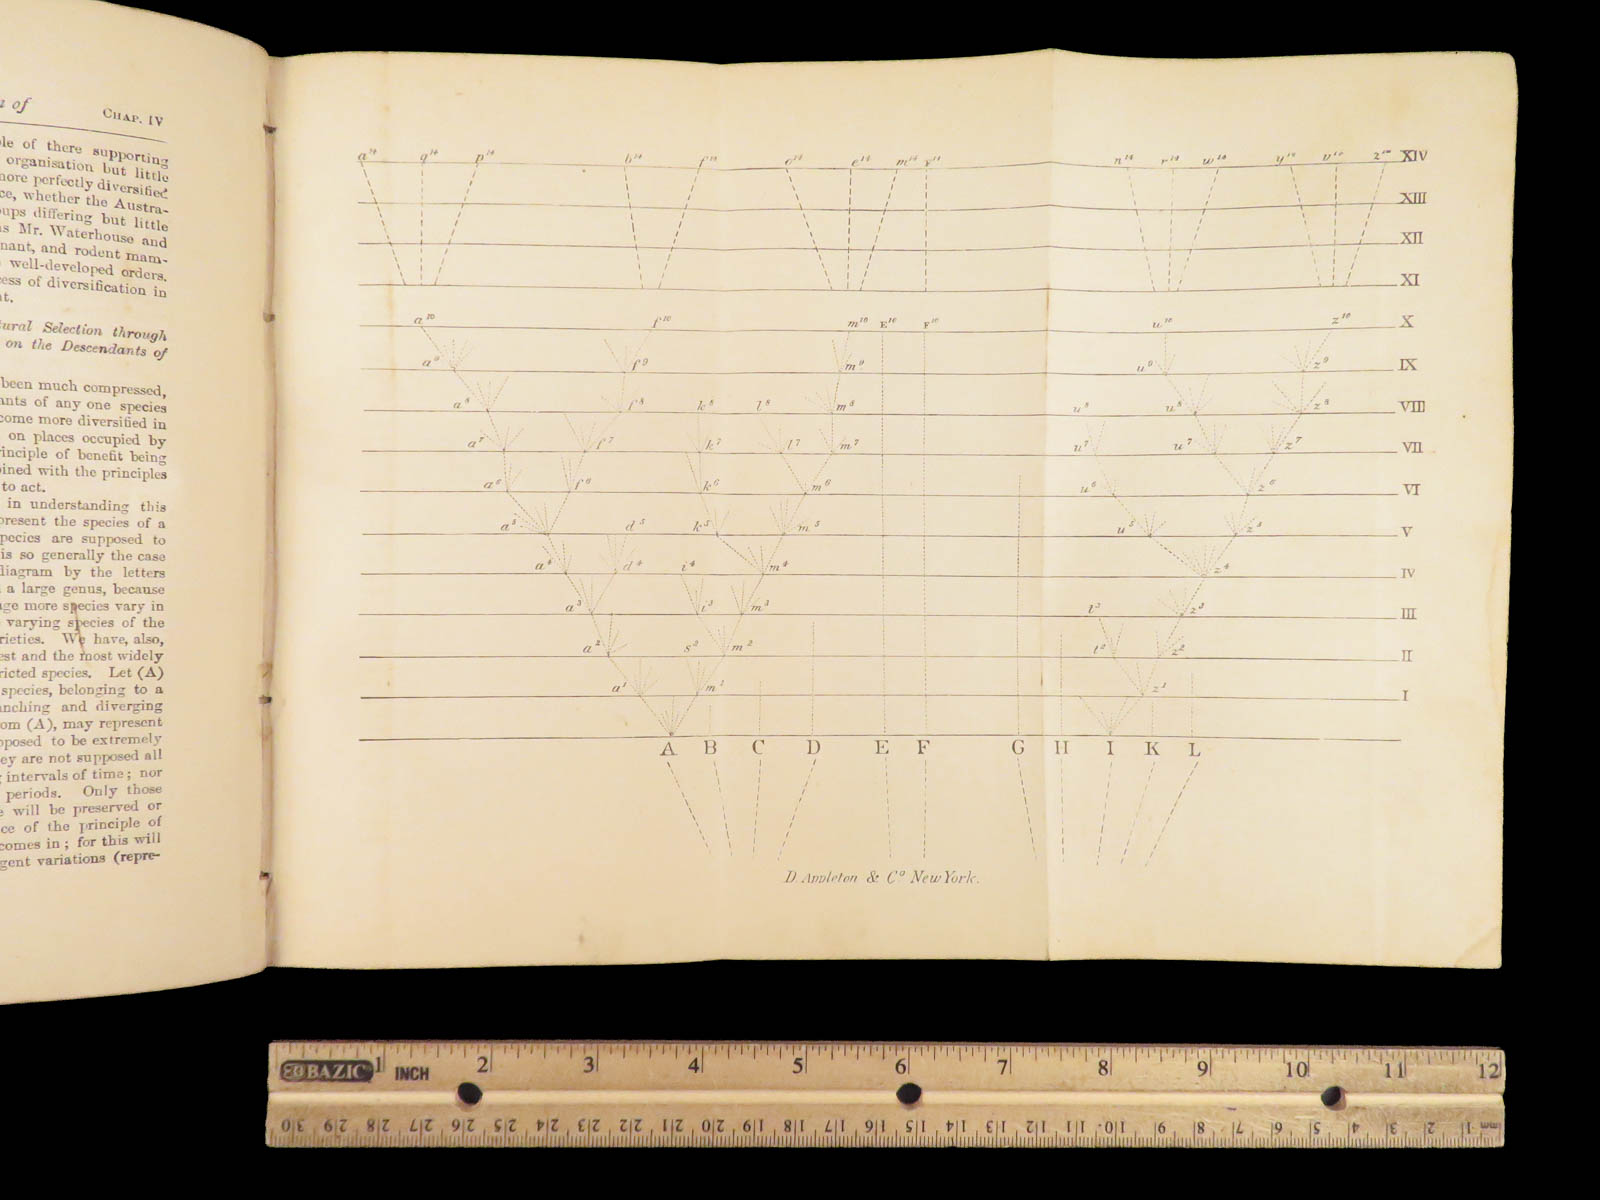 n of CHAP. IV
ple of there supporting
organisation but little
more perfectly diversified
ce, whether the Austra-
oups differing but little
as Mr. Waterhouse and
nant, and rodent mam-
well-developed orders.
cess of diversification in
nt.
tural Selection through
on the Descendants of
been much compressed,
ants of any one species
come more diversified in
on places occupied by
rinciple of benefit being
bined with the principles
to act.
in understanding this
present the species of a
species are supposed to
is so generally the case
diagram by the letters
a large genus, because
age more species vary in
varying species of the
rieties. We have, also,
est and the most widely
ricted species. Let (A)
species, belonging to a
anching and diverging
om (A), may represent
pposed to be extremely
ey are not supposed all
intervals of time; nor
periods. Only those
will be preserved or
ce of the principle of
comes in; for this will
gent variations (repre-
a¹⁴ q¹⁴ p¹⁴ b¹⁴ f¹⁴ o¹⁴ e¹⁴ m¹⁴ F¹⁴ n¹⁴ r¹⁴ w¹⁴ y¹⁴ v¹⁴ z¹⁴ XIV
XIII
XII
XI
a¹⁰ f¹⁰ m¹⁰ E¹⁰ F¹⁰ u¹⁰ z¹⁰ X
a⁹ f⁹ m⁹ u⁹ z⁹ IX
a⁸ f⁸ k⁸ l⁸ m⁸ u⁸ u⁸ z⁸ VIII
a⁷ f⁷ k⁷ l⁷ m⁷ u⁷ u⁷ z⁷ VII
a⁶ f⁶ k⁶ m⁶ u⁶ z⁶ VI
a⁵ d⁵ k⁵ m⁵ u⁵ z⁵ V
a⁴ d⁴ i⁴ m⁴ z⁴ IV
a³ i³ m³ t³ z³ III
a² s² m² t² z² II
a¹ m¹ z¹ I
A B C D E F G H I K L
D. Appleton & Cº New York.
BAZIC 1 INCH 2 3 4 5 6 7 8 9 10 11 12
30 29 28 27 26 25 24 23 22 21 20 19 18 17 16 15 14 13 12 11 10 9 8 7 6 5 4 3 2 1 mm